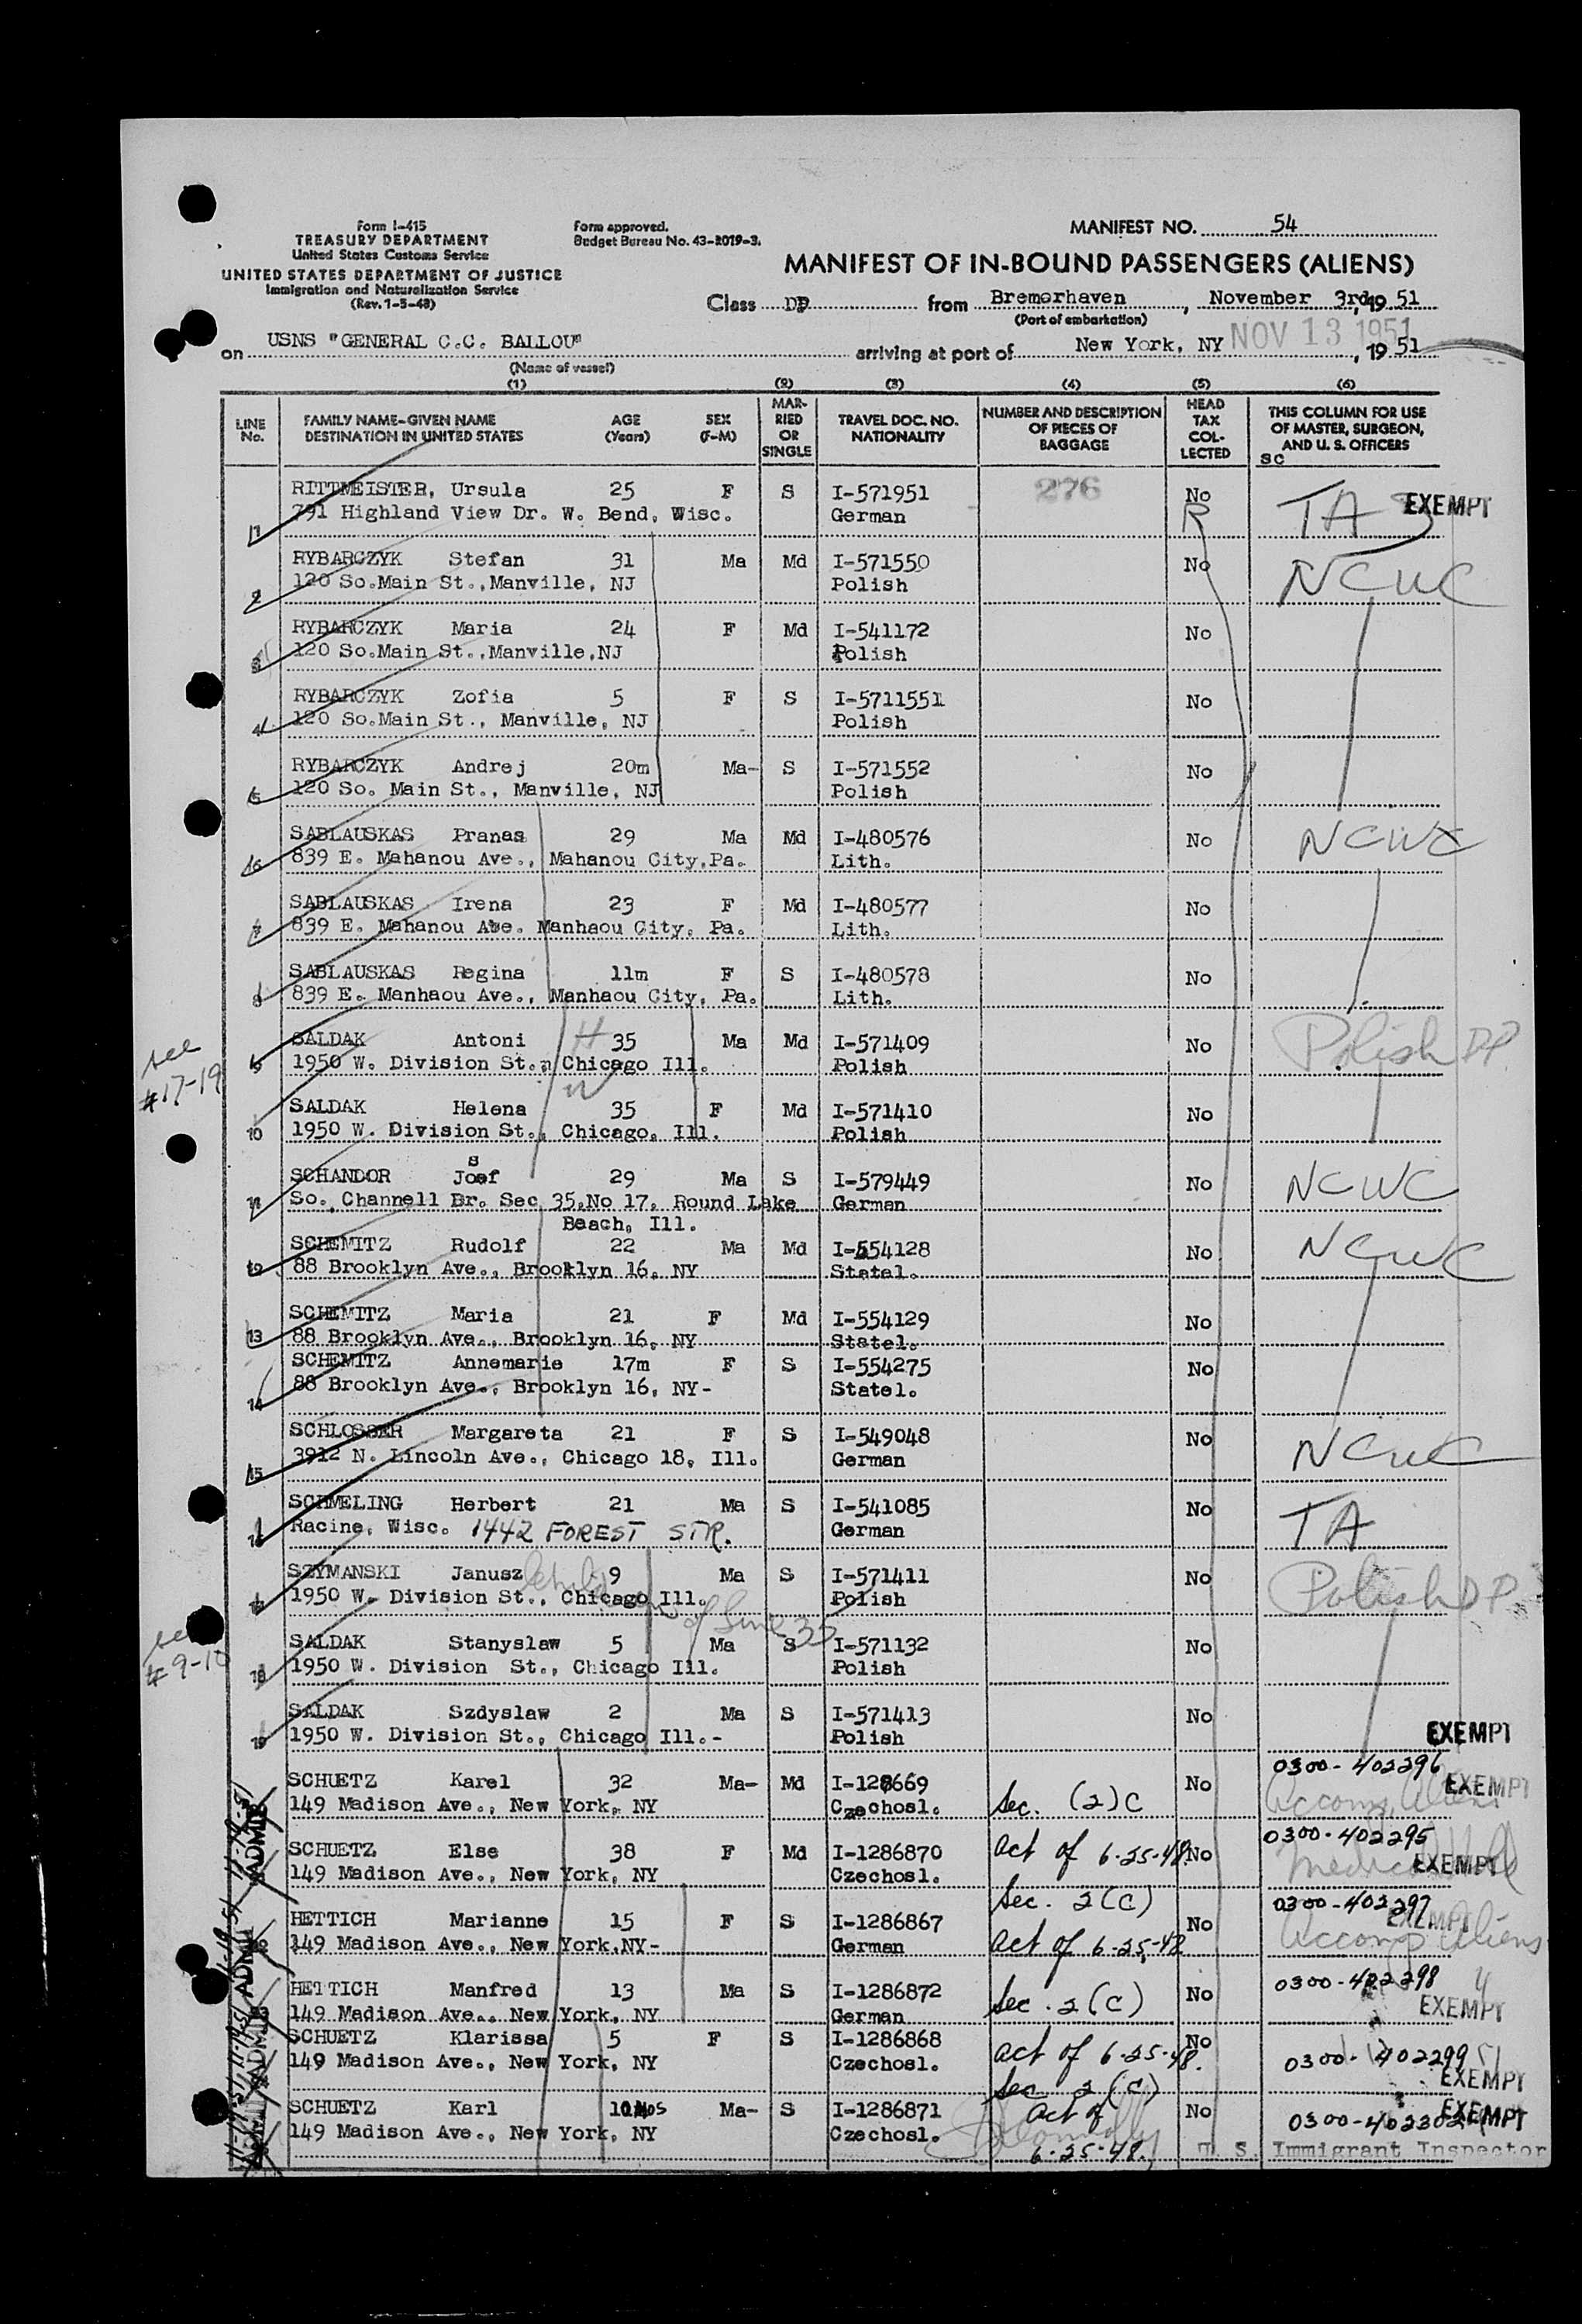 Form I-415
TREASURY DEPARTMENT
United States Customs Service
UNITED STATES DEPARTMENT OF JUSTICE
Immigration and Naturalization Service
(Rev. 1-5-48)
Form approved.
Budget Bureau No. 43-R019-3.
MANIFEST NO. 54
MANIFEST OF IN-BOUND PASSENGERS (ALIENS)
Class DP from Bremerhaven, November 3rd, 19 51
(Port of embarkation)
on USNS "GENERAL C.C. BALLOU" arriving at port of New York, NY NOV 13 1951, 19 51
(Name of vessel)
(1) (2) (3) (4) (5) (6)
LINE No. FAMILY NAME-GIVEN NAME DESTINATION IN UNITED STATES AGE (Years) SEX (F-M) MARRIED OR SINGLE TRAVEL DOC. NO. NATIONALITY NUMBER AND DESCRIPTION OF PIECES OF BAGGAGE HEAD TAX COLLECTED THIS COLUMN FOR USE OF MASTER, SURGEON, AND U. S. OFFICERS
sc
1 RITTMEISTER, Ursula 25 F S I-571951 276 No TA EXEMPT
791 Highland View Dr. W. Bend, Wisc. German
2 RYBARCZYK Stefan 31 Ma Md I-571550 No NCWC
120 So.Main St.,Manville, NJ Polish
3 RYBARCZYK Maria 24 F Md I-541172 No
120 So.Main St.,Manville,NJ Polish
4 RYBARCZYK Zofia 5 F S I-5711551 No
120 So.Main St., Manville, NJ Polish
5 RYBARCZYK Andrej 20m Ma- S I-571552 No
120 So. Main St., Manville, NJ Polish
6 SABLAUSKAS Pranas 29 Ma Md I-480576 No NCWC
839 E. Mahanou Ave., Mahanou City,Pa. Lith.
7 SABLAUSKAS Irena 23 F Md I-480577 No
839 E. Mahanou Ave. Manhaou City, Pa. Lith.
8 SABLAUSKAS Regina 11m F S I-480578 No
839 E. Manhaou Ave., Manhaou City, Pa. Lith.
see #17-19
9 SALDAK Antoni H 35 Ma Md I-571409 No Polish DP.
1950 W. Division St., Chicago Ill. Polish
10 SALDAK Helena W 35 F Md I-571410 No
1950 W. Division St., Chicago, Ill. Polish
11 SCHANDOR Josef 29 Ma S I-579449 No NCWC
So. Channell Dr. Sec 35.No 17, Round Lake German
Beach, Ill.
12 SCHEMITZ Rudolf 22 Ma Md I-554128 No NCWC
88 Brooklyn Ave., Brooklyn 16, NY Statel.
13 SCHEMITZ Maria 21 F Md I-554129 No
88 Brooklyn Ave., Brooklyn 16, NY Statel.
14 SCHEMITZ Annemarie 17m F S I-554275 No
88 Brooklyn Ave., Brooklyn 16, NY- Statel.
15 SCHLOSSER Margareta 21 F S I-549048 No NCWC
3912 N. Lincoln Ave., Chicago 18, Ill. German
16 SCHMELING Herbert 21 Ma S I-541085 No TA
Racine, Wisc. 1442 FOREST STR. German
17 SZYMANSKI Janusz 9 Ma S I-571411 No Polish DP
1950 W. Division St., Chicago Ill. Polish
see #9-10
18 SALDAK Stanyslaw 5 Ma S I-571132 No
1950 W. Division St., Chicago Ill. Polish
19 SALDAK Szdyslaw 2 Ma S I-571413 No
1950 W. Division St., Chicago Ill.- Polish EXEMPT
SCHUETZ Karel 32 Ma- Md I-128669 Sec. (2)C No 0300-402296 EXEMPT
149 Madison Ave., New York, NY Czechosl. Accomp. Aliens
SCHUETZ Else 38 F Md I-1286870 Act of 6-25-48. No 0300-402295 EXEMPT
149 Madison Ave., New York, NY Czechosl.
22 HETTICH Marianne 15 F S I-1286867 Sec. 2(C) No 0300-402297 EXEMPT
149 Madison Ave., New York,NY- German Act of 6-25-48 Accomp Aliens
23 HETTICH Manfred 13 Ma S I-1286872 Sec. 2(C) No 0300-402298 EXEMPT
149 Madison Ave., New York, NY German
SCHUETZ Klarissa 5 F S I-1286868 Act of 6-25-48. No 0300-402299 EXEMPT
149 Madison Ave., New York, NY Czechosl.
SCHUETZ Karl 10MOS Ma- S I-1286871 Sec 2(C) Act of 6-25-48. No EXEMPT
149 Madison Ave., New York, NY Czechosl.
U. S. Immigrant Inspector